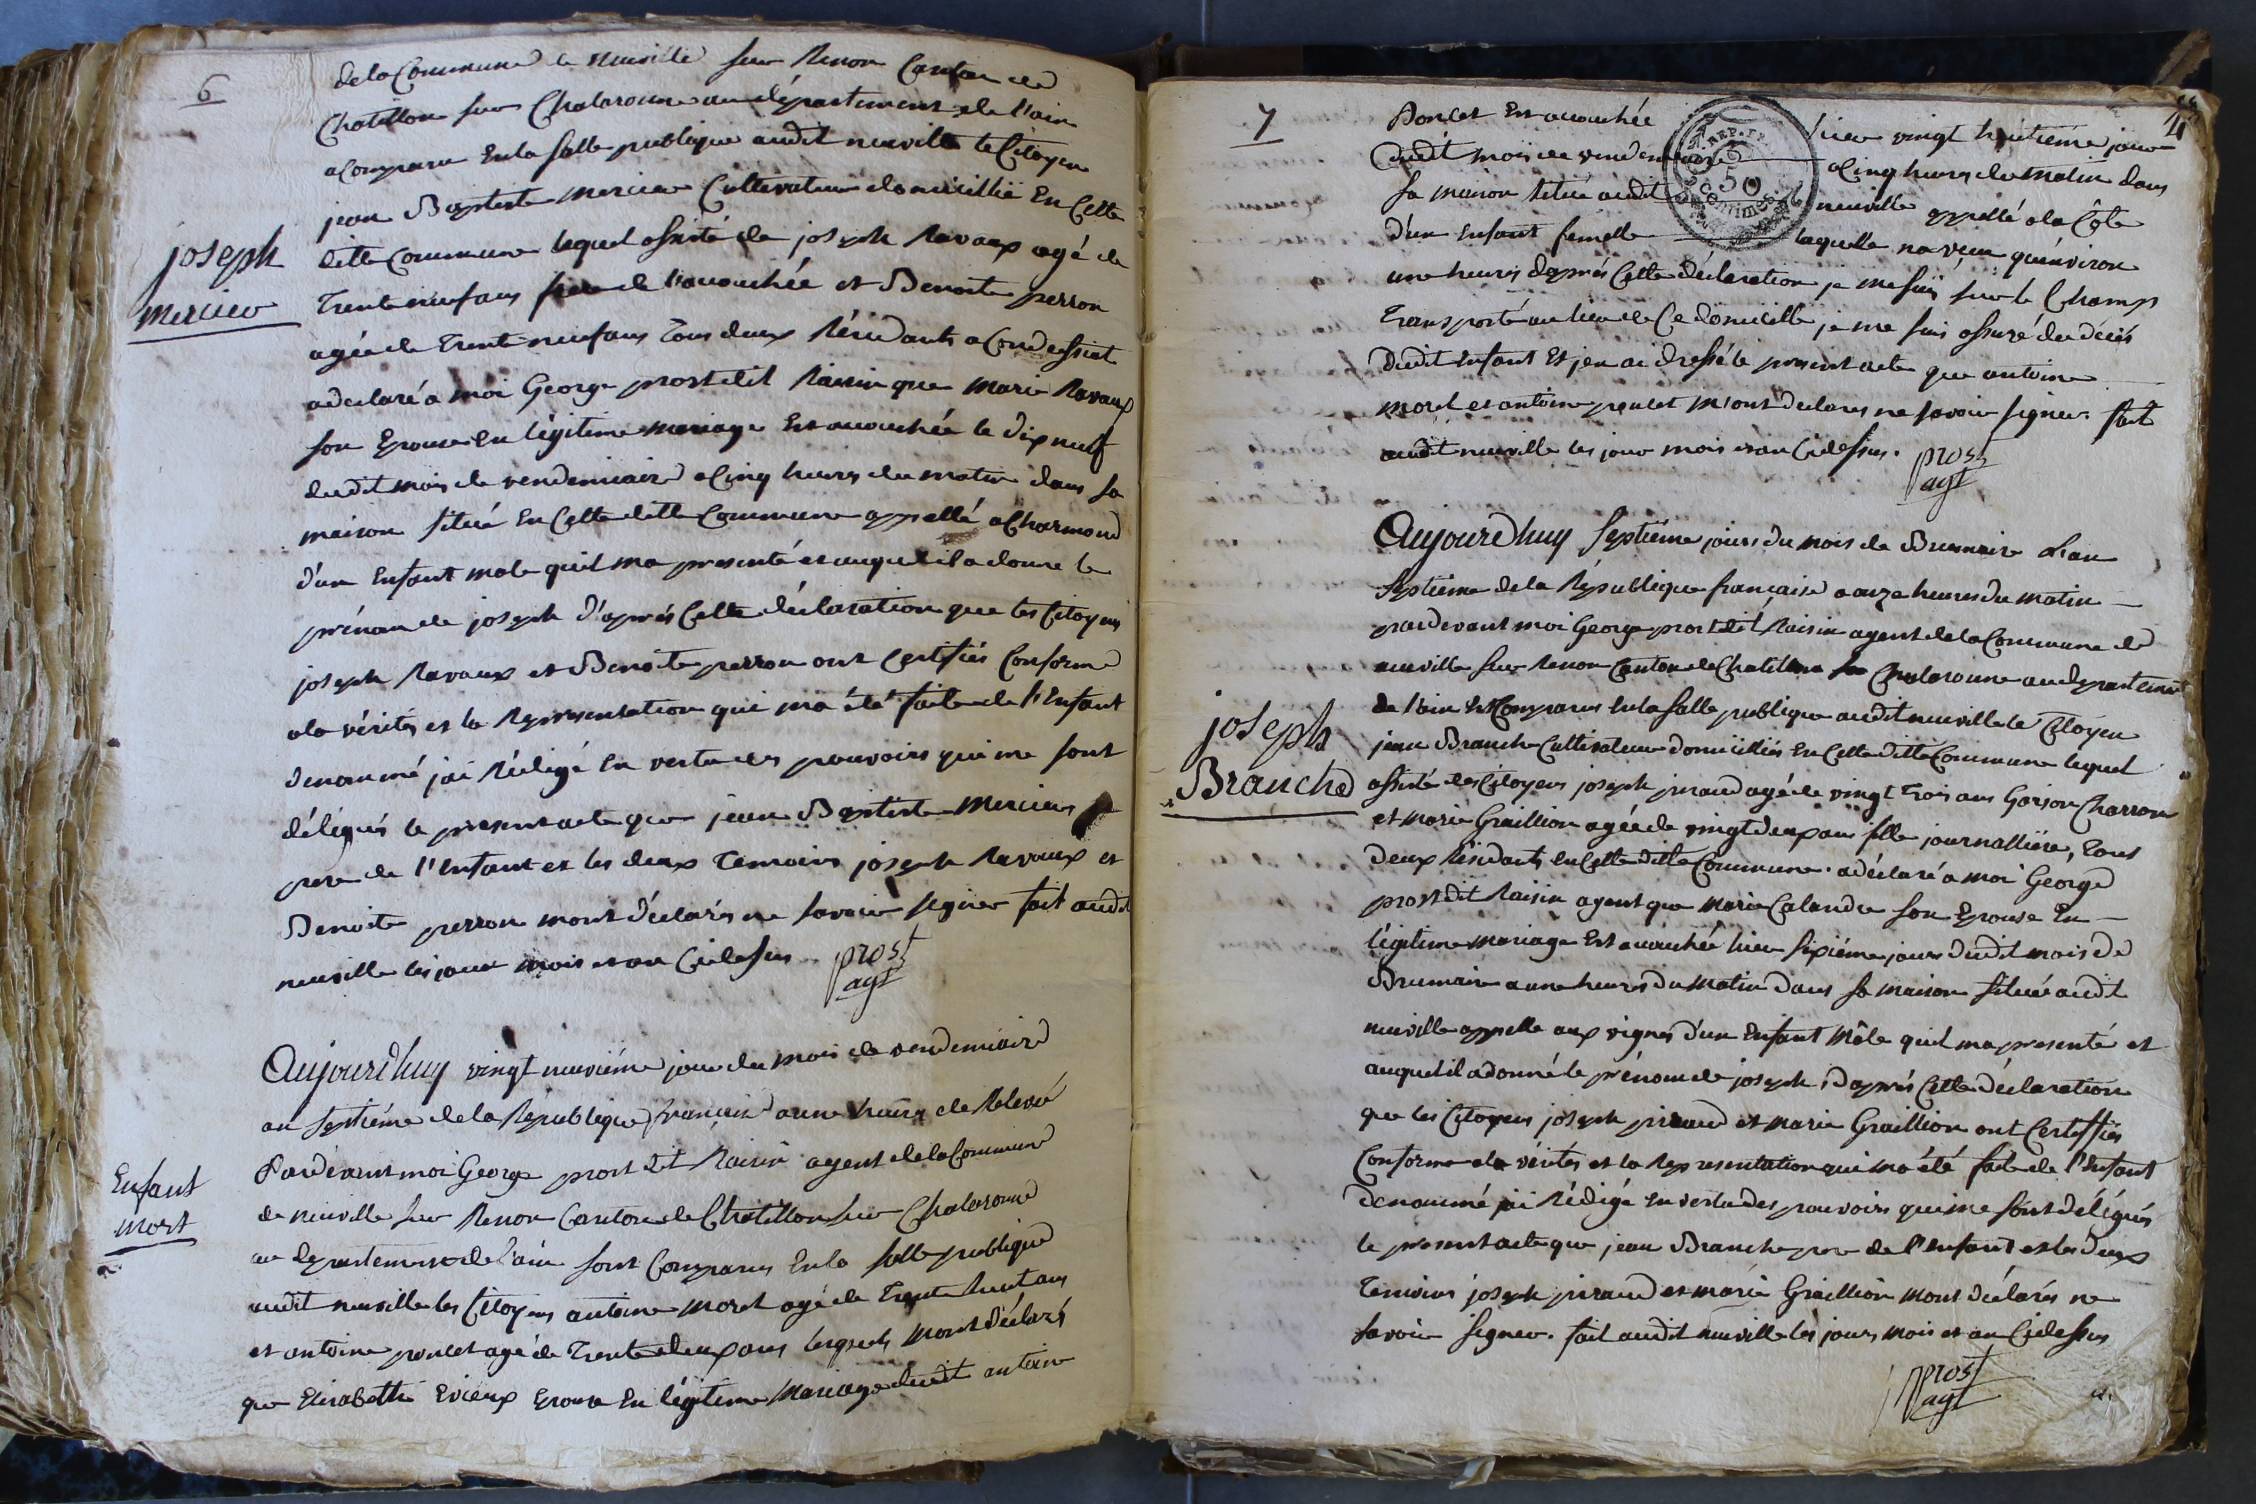 6
de la Commune de neuville sur Renon Canton de
Chatillon sur Chalaronne au département de l'ain
a Comparu En la salle publique audit neuville le Citoyen
jean Baptiste mercier Cultivateur domicillié En Cette
ditte Commune lequel assisté de joseph Ravaux agé de
joseph
mercier
Trente neuf ans frere de l'acouchée et Benoite perron
agée de Trente neuf ans Tous deux Résidants a Condessiat
a déclaré a moi George prost dit Raisin que marie Ravaux
son Epouse En légitime mariage Est acouchée le dix neuf
dudit mois de vendemiaire a Cinq heures du matin dans sa
maison située En Cette ditte Commune appellé a Charmond
d'un Enfant male quil ma presenté et auquel il a donné le
prénom de joseph d'aprés Cette déclaration que les Citoyens
joseph Ravaux et Benoite perron ont Certifiés Conforme
a la vérités et la Representation qui ma été faite de l'Enfant
denommé jai Rédigé En vertu des pouvoirs qui me sont
délégués le present acte que jean Baptiste mercier
pere de l'Enfant et les deux Temoins joseph Ravaux et
Benoite perron mont déclarés ne savoir signer fait audit
neuville les jour mois et an Cidessus
prost
agt
Aujourdhuy vingt neuviéme jour du mois de vendemiaire
an septiéme de la République française a une heures de Relevé
Pardevant moi George prost dit Raisin agent de la Commune
Enfant
mort
de neuville sur Renon Canton de Chatillon sur Chalaronne
au departement de l'ain sont Comparus En la salle publique
audit neuville les Citoyens antoine moret agé de Trente huit ans
et antoine poncet agé de Trente deux ans lesquels mont déclaré
que Elisabeth Evieux Epouse En légitime Mariage dudit antoine
7
Poncet Est acouchée hier vingt huitieme jour
dudit mois de vendemiaire a Cinq heures du matin dans
REP. FR.
50
Centimes
sa maison située audit neuville appellé a la Côte
d'un Enfant femelle laquelle na vecu quénviron
une heures d'aprés Cette déclaration je me suis sur le Champ
Transporté au lieu de Ce domicille je me suis assuré du décés
dudit Enfant Et jen ai dressé le present acte que antoine
moret et antoine poncet m'ont declarés ne savoir signer. fait
audit neuville les jour mois et an Cidessus.
prost
agt
Aujourdhuy septiéme jours du mois de Brumaire Lan
septiéme de la République française a onze heures du matin
pardevant moi George prost dit Raisin agent de la Commune de
neuville sur Renon Canton de Chatillon sur Chalaronne au departement
de l'ain Est Comparus En la salle publique audit neuville le Citoyen
joseph
Branche
jean Branche Cultivateur domicilliés En Cette ditte Commune lequel
assisté des Citoyens joseph piraud agé de vingt Trois ans Garson Charron
et marie Graillion agée de vingt deux ans fille journalliére, Tous
deux Résidants En Cette ditte Commune. a déclaré a moi George
prost dit Raisin agent que Marie Calandre son Epouse En
légitime mariage Est acouchée hier sixiéme jours dudit mois de
Brumaire a une heures du Matin Dans sa maison située audit
neuville appelle aux vignes d'un Enfant Mâle quil ma presenté et
auquel il a donné le prénom de joseph, d'aprés Cette déclaration
que les Citoyens joseph piraud et marie Graillion ont Certiffiés
Conforme a la vérités et la Representation qui ma été faite de l'Enfant
denommé jai Rédigé En vertu des pouvoirs qui me sont délégués
le present acte que jean Branche pere de l'Enfant et les deux
Temoins joseph piraud et marie Graillion mont déclarés ne
savoir signer. fait audit neuville les jours mois et an Cidessus
prost
agt